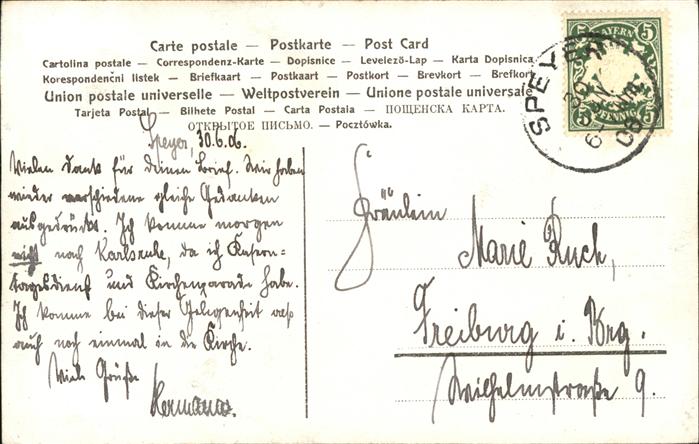 Carte postale — Postkarte — Post Card
Cartolina postale — Correspondenz-Karte — Dopisnice — Levelező-Lap — Karta Dopisnica
Korespondenční listek — Briefkaart — Postkaart — Postkort — Brevkort — Brefkort
Union postale universelle — Weltpostverein — Unione postale universale
Tarjeta Postal — Bilhete Postal — Carta Postala — ПОЩЕНСКА КАРТА.
ОТКРЫТОЕ ПИСЬМО. — Pocztówka.
BAYERN
5 5
5 PFENNIG 5
SPEYER
30
Speyer, 30.6.06.
Vielen Dank für deinen Brief. Wir haben
wieder verschiedene gleiche Gedanken
ausgedrückt. Ich komme morgen
nicht nach Karlsruhe, da ich
und Kirchenparade habe.
Ich komme bei dieser Gelegenheit
auch noch einmal in die Kirche.
Viele Grüße
Hermann.
Fräulein
Marie Ruch,
Freiburg i. Brg.
Wilhelmstraße 9.